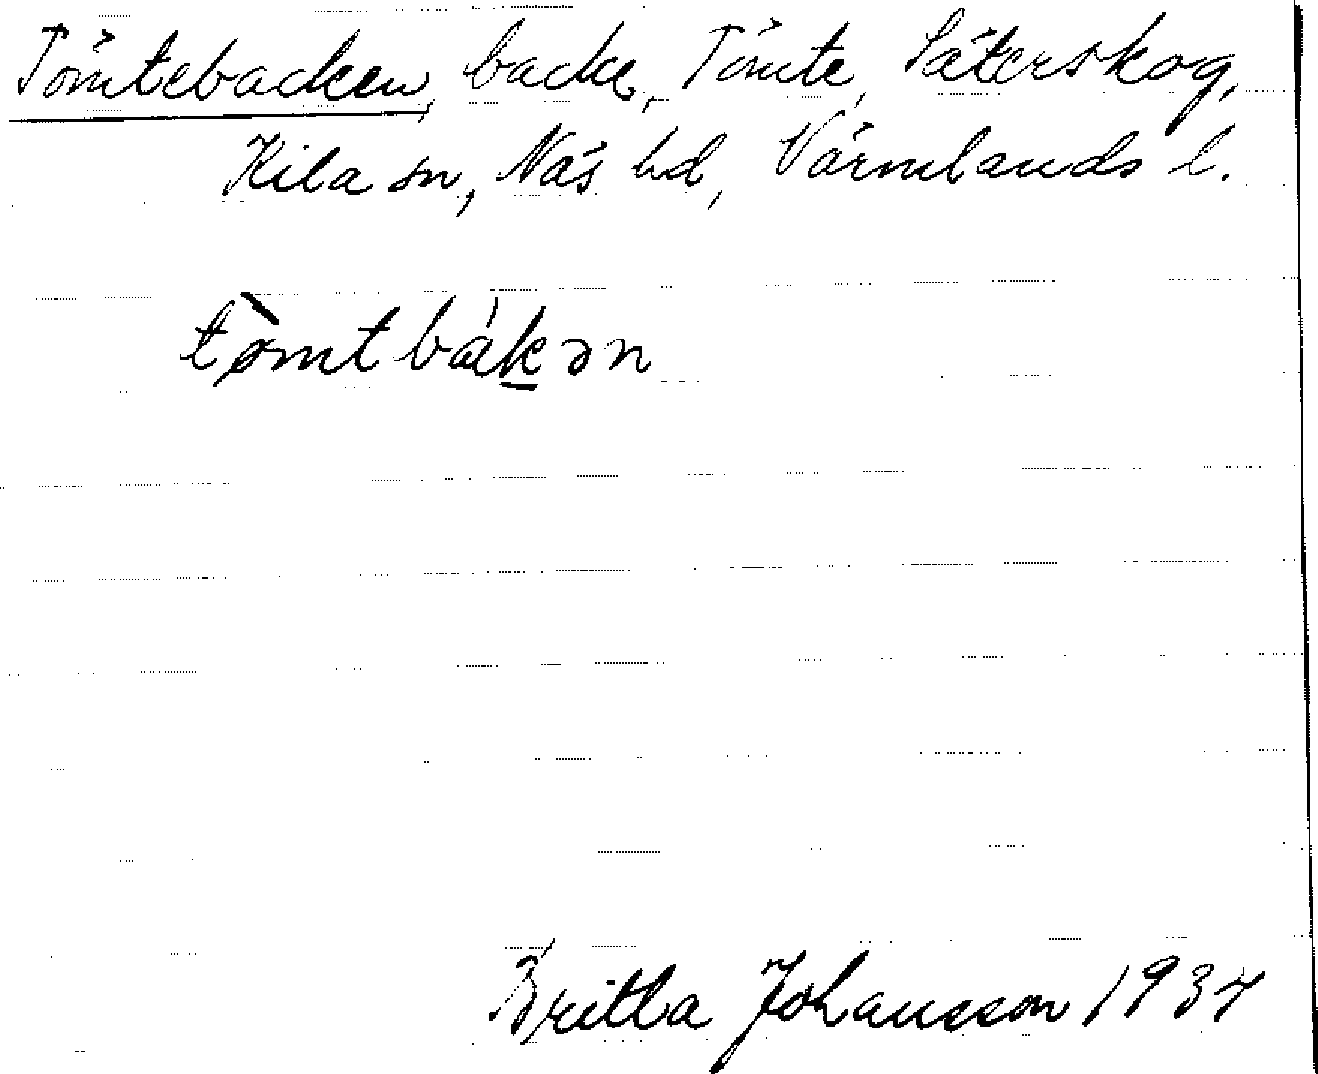 Tömtebacken, backe, Tömte, Säterskog,
Kila sn, Näs hd, Värmlands l.
tø̀mtbák̲ən
Britta Johansson 1937